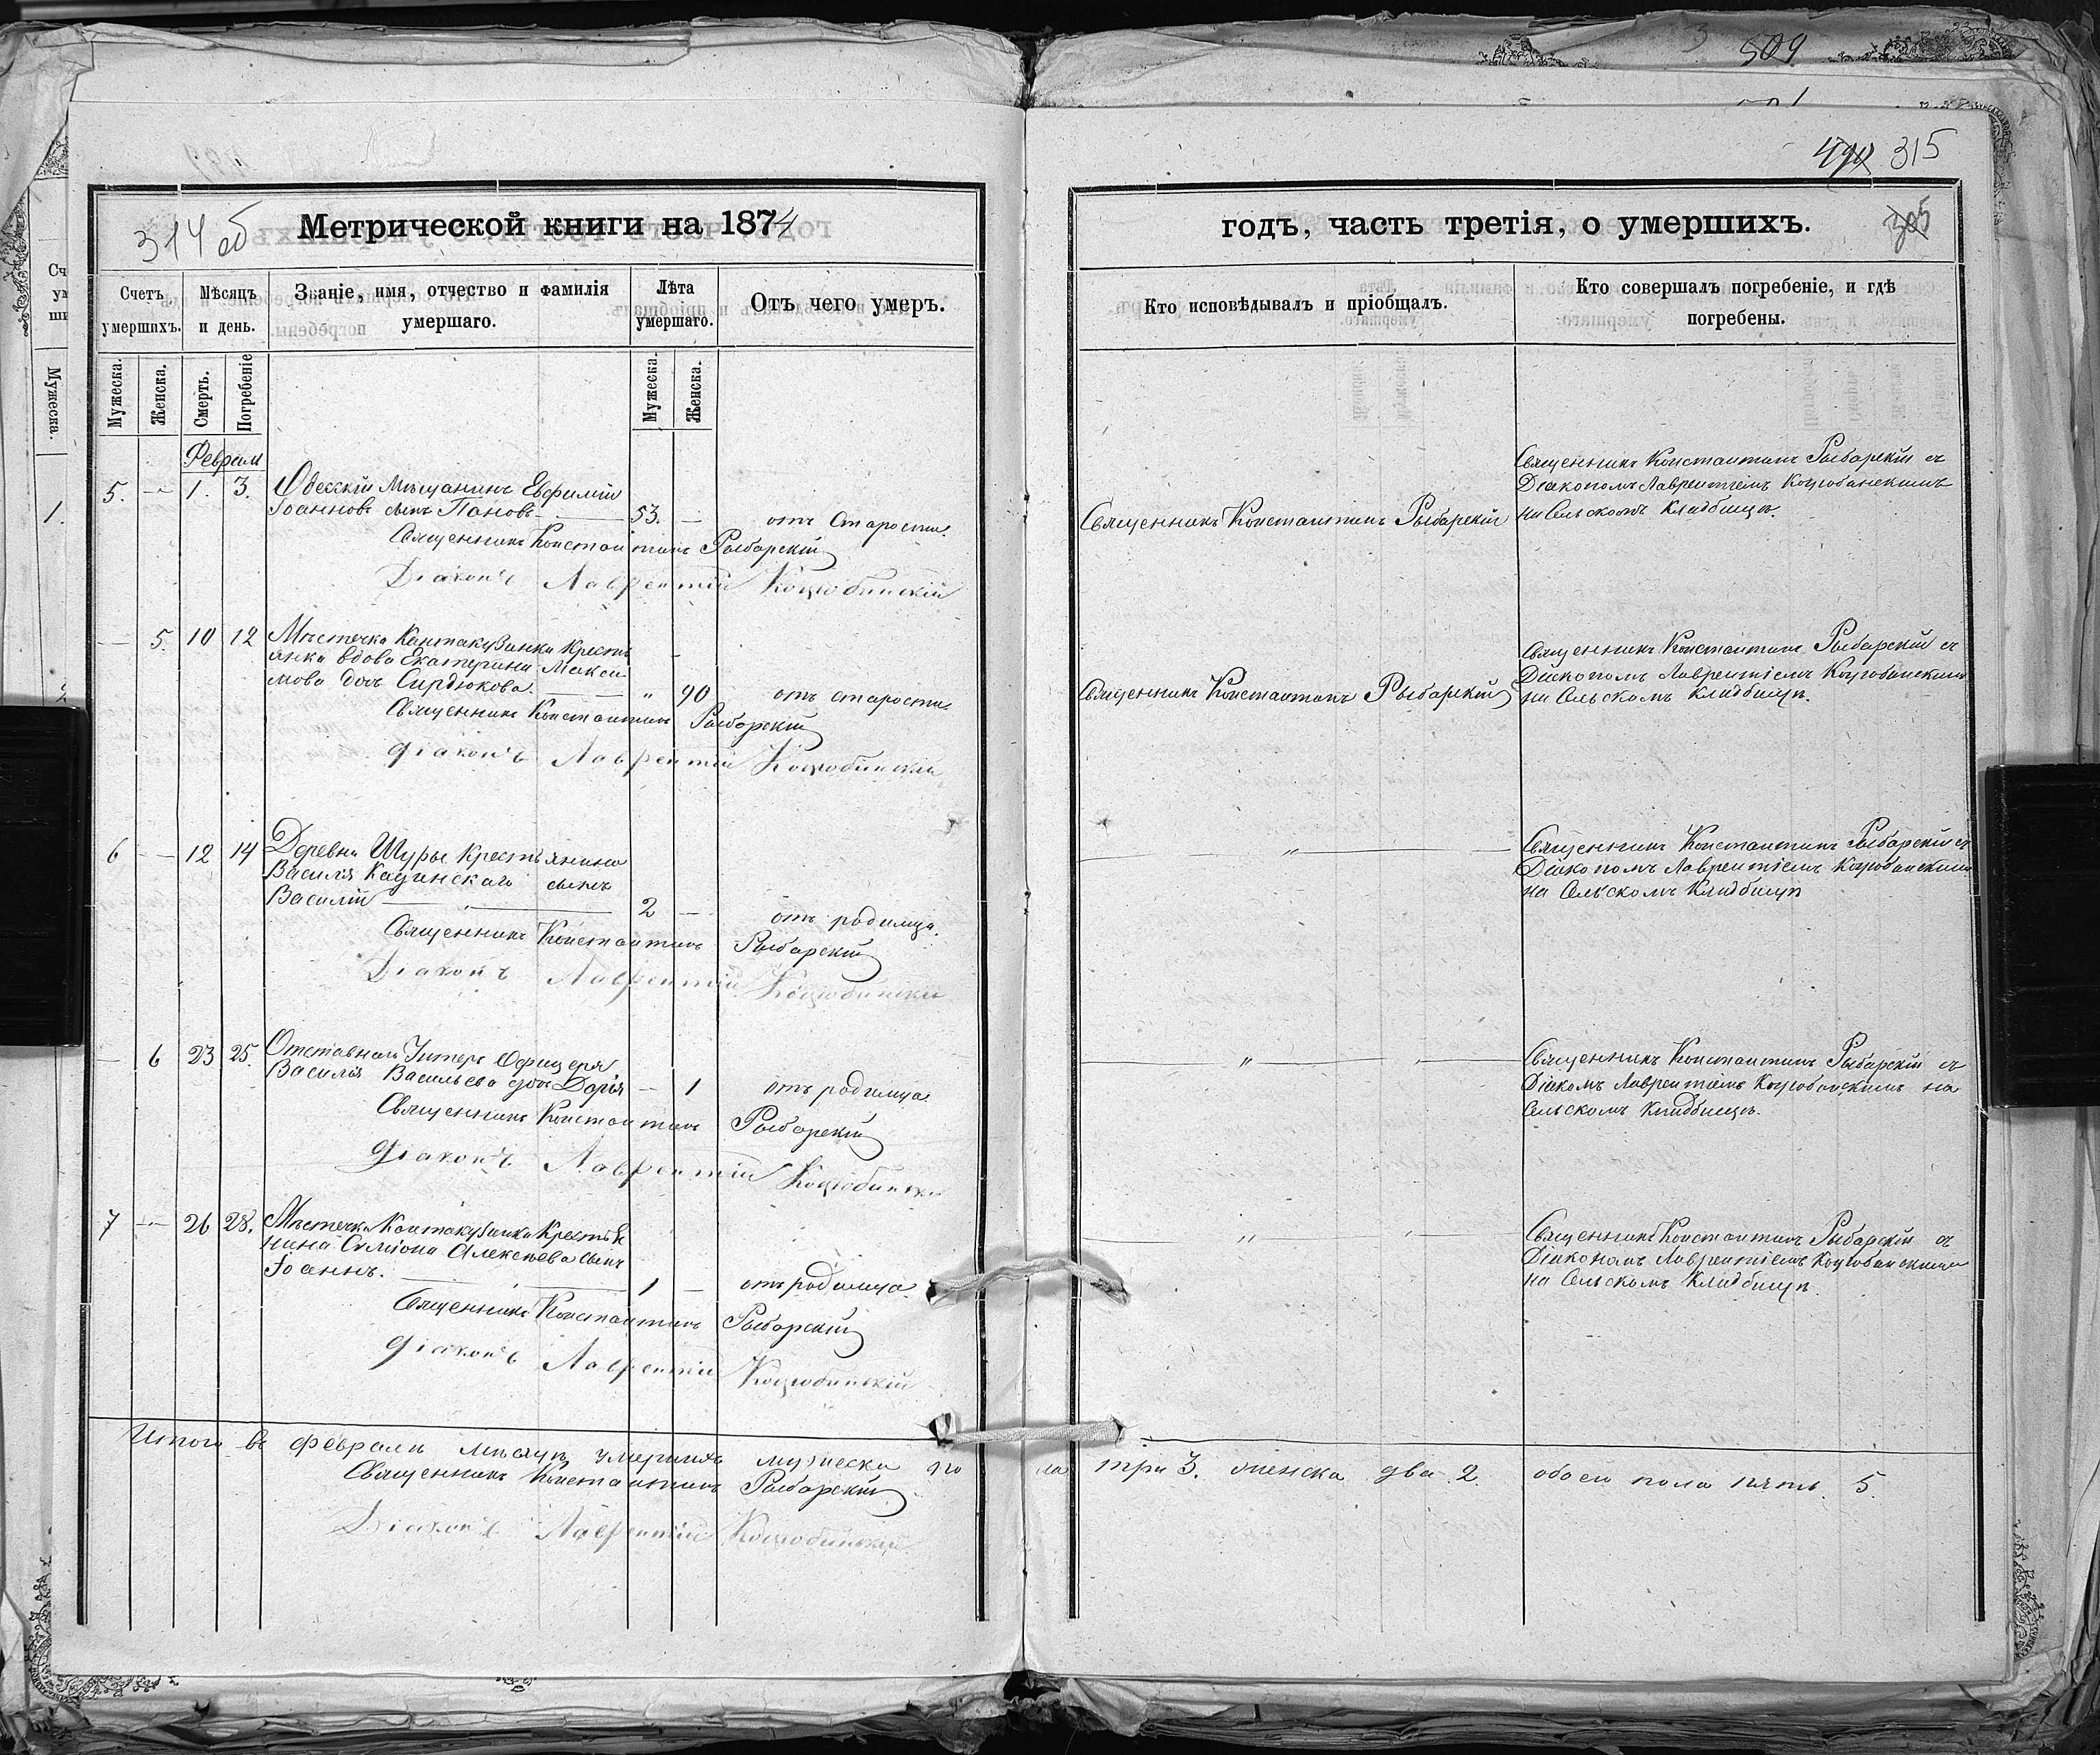 509
490 315
314 об
Метрической книги на 1874
годъ, часть третія, о умершихъ.
305
Счетъ умершихъ.
Мѣсяцъ и день.
Званіе, имя, отчество и фамилія умершаго.
Лѣта умершаго.
Отъ чего умеръ.
Кто исповѣдывалъ и пріобщалъ.
Кто совершалъ погребеніе, и гдѣ погребены.
Мужеска.
Женска.
Смерть.
Погребеніе
Мужеска.
Женска.
Феврал
5. — 1. 3. Одесскій Мѣщанинъ Евфимій
Іоанновъ сынъ Пановъ — 53. — отъ Старости.
Священникъ Константинъ Рыбарскій
Діаконъ Лаврентій Коцюбинскій
Священникъ Константинъ Рыбарскій
Священникъ Константинъ Рыбарскій съ
Діакономъ Лаврентіемъ Коцюбинскимъ
на Сельскомъ Кладбищѣ.
— 5. 10 12 Мѣстечка Кантакузинки Кресть
янка вдова Екатерина Макси
мова дочь Сирдюкова. — " 90 отъ старости.
Священникъ Константинъ Рыбарскій
Діаконъ Лаврентій Коцюбинскій
Священникъ Константинъ Рыбарскій
Священникъ Константинъ Рыбарскій съ
Діакономъ Лаврентіемъ Коцюбинскимъ
на Сельскомъ Кладбищѣ.
6 — 12 14 Деревни Шуры Крестьянина
Василія Кацинскаго сынъ
Василій — 2 — отъ родимца.
Священникъ Константинъ Рыбарскій
Діаконъ Лаврентій Коцюбинскій
— " —
Священникъ Константинъ Рыбарскій съ
Діакономъ Лаврентіемъ Коцюбинскимъ
на Сельскомъ Кладбищѣ
— 6 23 25. Отставнаго Унтеръ Офицера
Василія Васильева дочь Дарія — 1 отъ родимца
Священникъ Константинъ Рыбарскій
Діаконъ Лаврентій Коцюбинскій
— " — " —
Священникъ Константинъ Рыбарскій съ
Діакомъ Лаврентіемъ Коцюбинскимъ на
Сельскомъ Кладбищѣ.
7 — 26 28. Мѣстечка Кантакузинки Крестья
нина Симіона Алексѣева сынъ
Іоаннъ. — 1 — отъ родимца
Священникъ Константинъ Рыбарскій
Діаконъ Лаврентій Коцюбинскій
— " — " —
Священникъ Константинъ Рыбарскій съ
Діакономъ Лаврентіемъ Коцюбинскимъ
на Сельскомъ Кладбищѣ.
Итого въ февралѣ мѣсяцѣ умершихъ мужеска по ла три 3. женска два 2. обоего пола пять 5.
Священникъ Константинъ Рыбарскій
Діаконъ Лаврентій Коцюбинскій